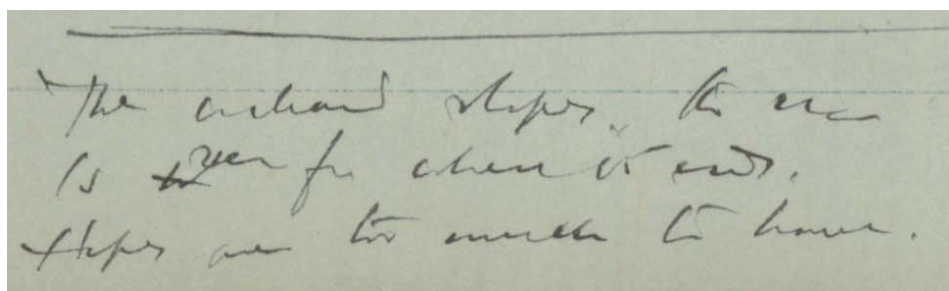 The orchard slopes, the sea
Is seen from where it ends.
Hopes are too much to have.